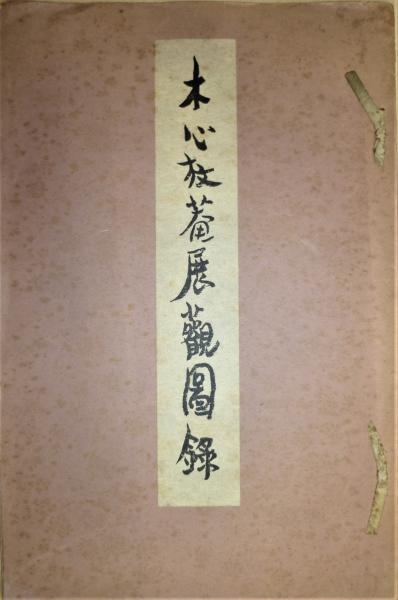 木心放菴展觀圖錄